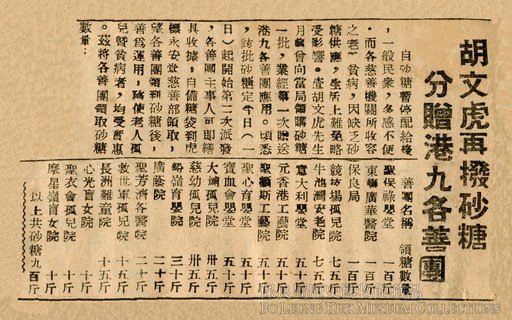 胡文虎再撥砂糖
分贈港九各善團
自砂糖暫停配給後
，一般民衆，多感不便
。而各慈善機關所收容
之老、貧病，因缺乏砂
糖供應，生活上難免略
受影響。查胡文虎先生
月前曾向當局領購砂糖
一批，業經第一次贈送
港九各善團應用。頃悉
，該批砂糖定今日（一
日）起開始第二次派發
，各善團主事人可即繕
具收據，自備糖袋到虎
標永安堂慈善部領取，
望各善團領到砂糖後，
善爲運用，務使老人孤
兒暨貧病者，均受實惠
。茲將各善團領取砂糖
數量：
善團名稱　領糖數量
聖保祿嬰堂　一百斤
東華廣華醫院　一百斤
保良局　一百斤
牛池灣安老院　七五斤
競技場孤兒院　七五斤
意大利嬰堂　五十斤
元香港工藝院　五十斤
聖類斯工藝院　五十斤
聖心育嬰堂　五十斤
寶血會嬰堂　五十斤
大埔孤兒院　卅五斤
慈幼孤兒院　卅五斤
粉嶺育嬰院　三十斤
廣蔭院　二十斤
聖芳濟各醫院　二十斤
救世軍孤兒院　十五斤
長洲難童院　十五斤
心光盲女院　十斤
聖衣會孤兒院　十斤
摩星嶺盲女院　十斤
以上共砂糖九百斤
保良局歷史博物館藏品
PO LEUNG KUK MUSEUM COLLECTIONS